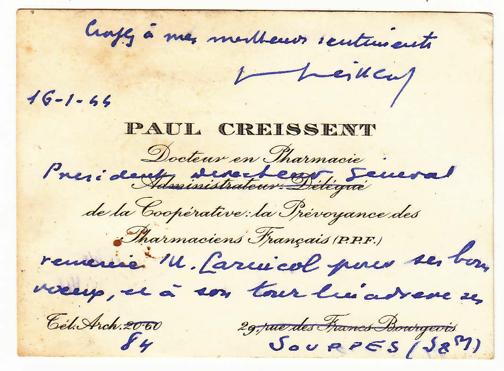 Croyez à mes meilleurs sentiments
16-1-44
PAUL CREISSENT
Docteur en Pharmacie
President directeur Général
Administrateur-Délégué
de la Coopérative: la Prévoyance des
Pharmaciens Français (P.P.F.)
remercie M. Carnicol pour ses bons
voeux, et à son tour lui adresse ses
Tél. Arch. 20-60 29, rue des Francs Bourgeois
84 SOUPPES (S&M)